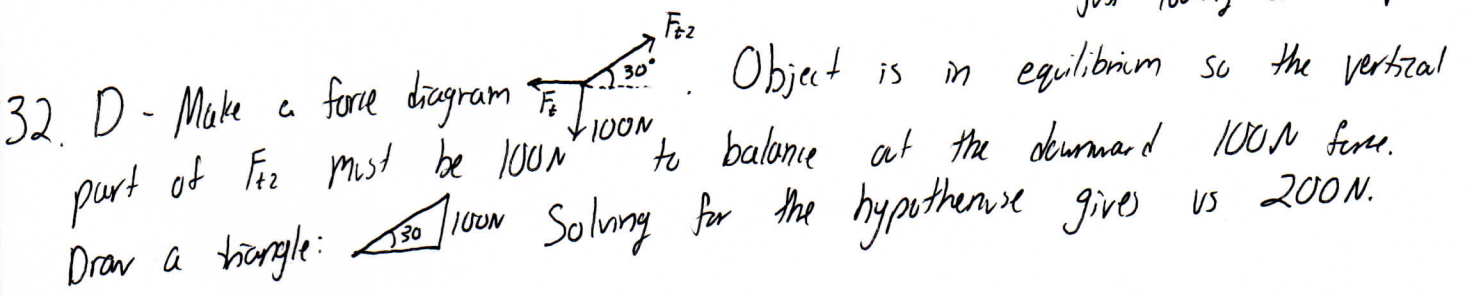 32. D - Make a force diagram Ft Ft2 30° 100N . Object is in equilibrium so the vertical
part of Ft2 must be 100N to balance out the downward 100N force.
Draw a triangle: 30 100N Solving for the hypothenuse gives us 200N.